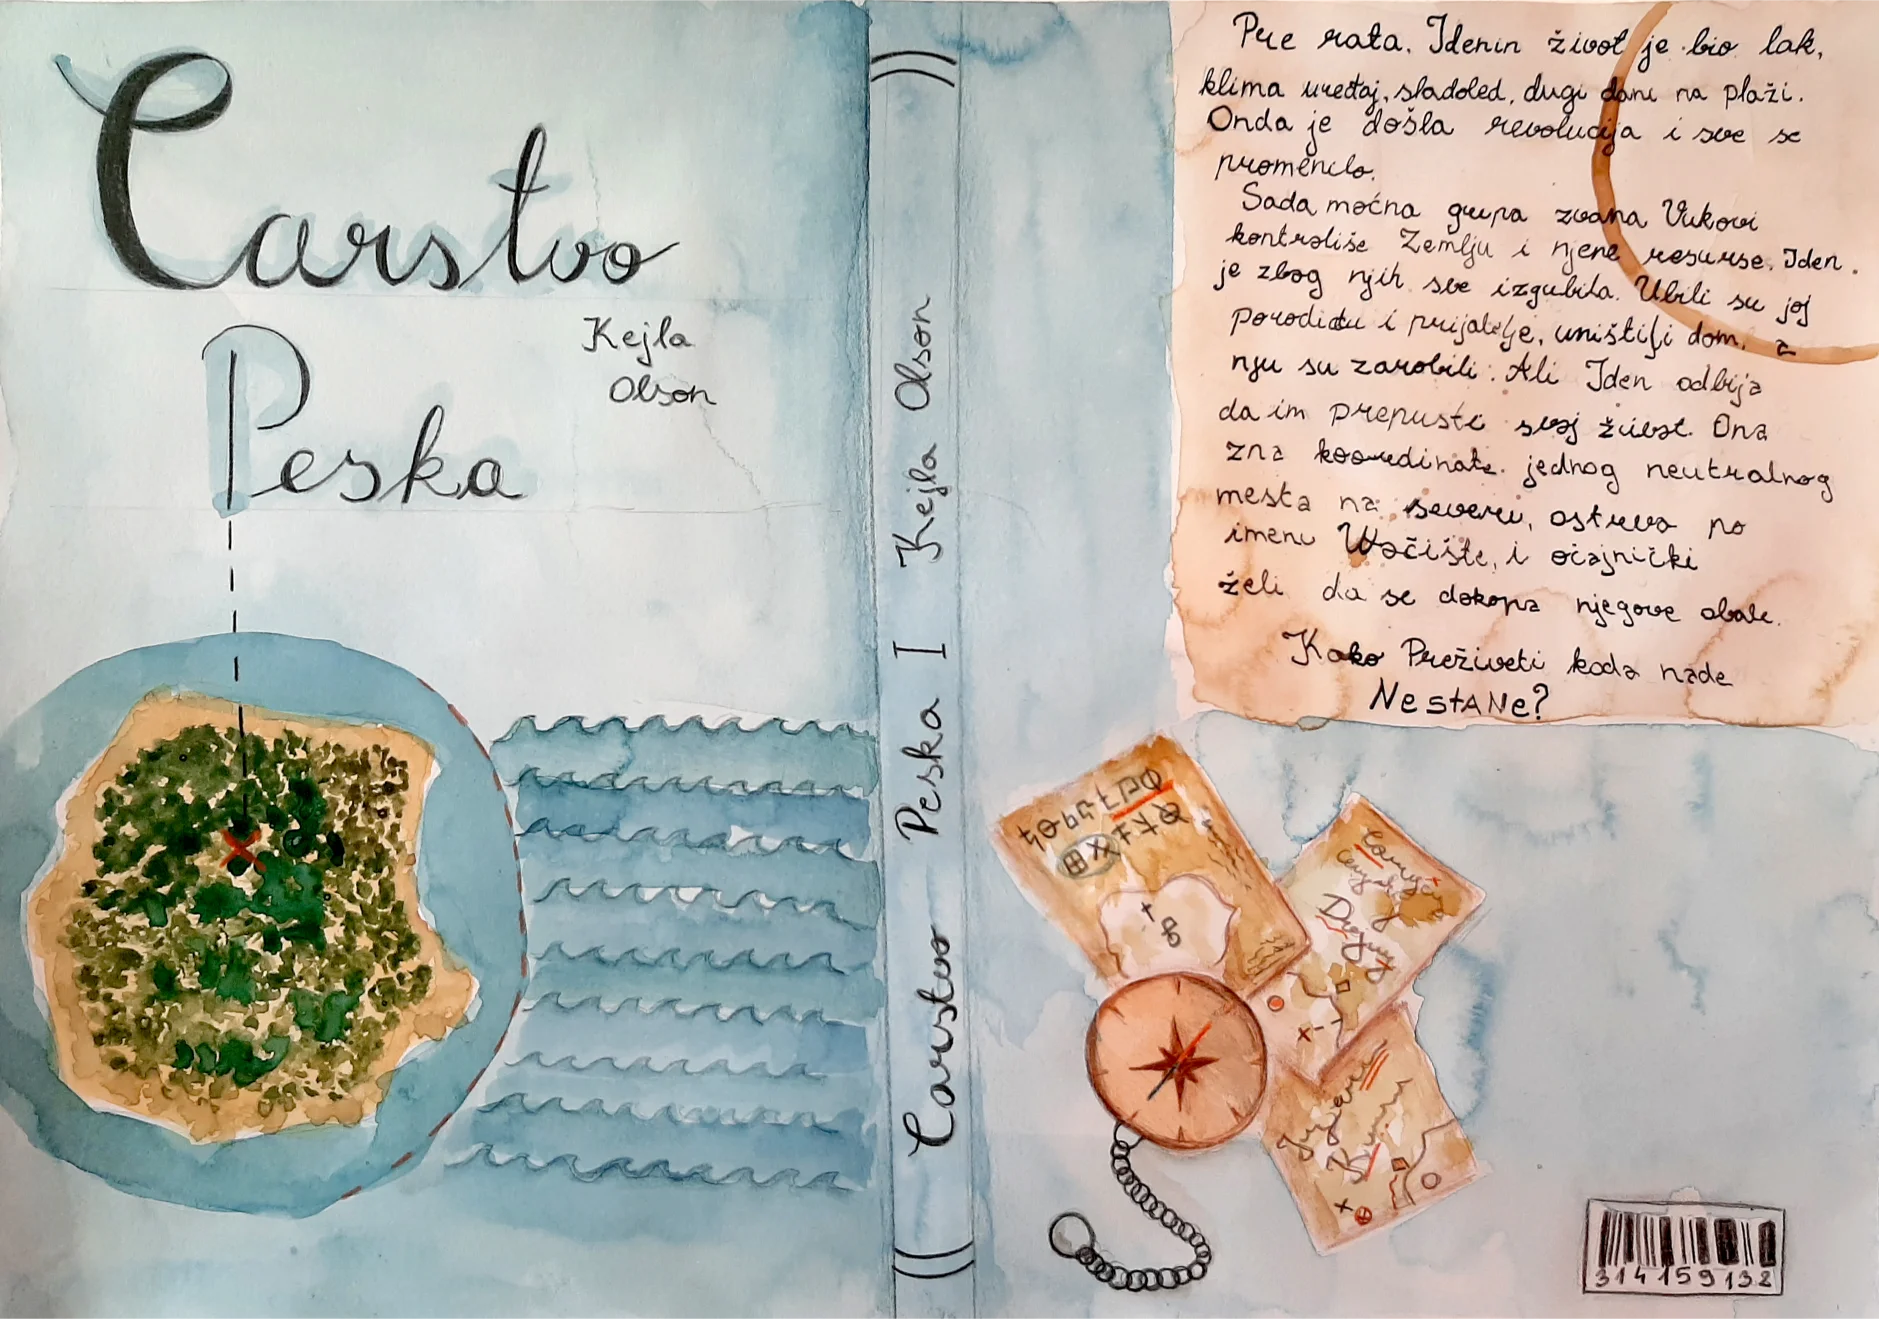 Carstvo
Peska
Kejla
Olson
Carstvo Peska I Kejla Olson
Pre rata, Idenin život je bio lak,
klima uređaj, sladoled, dugi dani na plaži.
Onda je došla revolucija i sve se
promenilo.
Sada moćna grupa zvana Vukovi
kontroliše Zemlju i njene resurse. Iden
je zbog njih sve izgubila. Ubili su joj
porodicu i prijatelje, uništili dom, a
nju su zarobili. Ali Iden odbija
da im prepusti svoj život. Ona
zna koordinate jednog neutralnog
mesta na severu, ostrva po
imenu, i očajnički
želi da se dokopa njegove obale.
Kako Preživeti kada nade
NestANe?
314159132